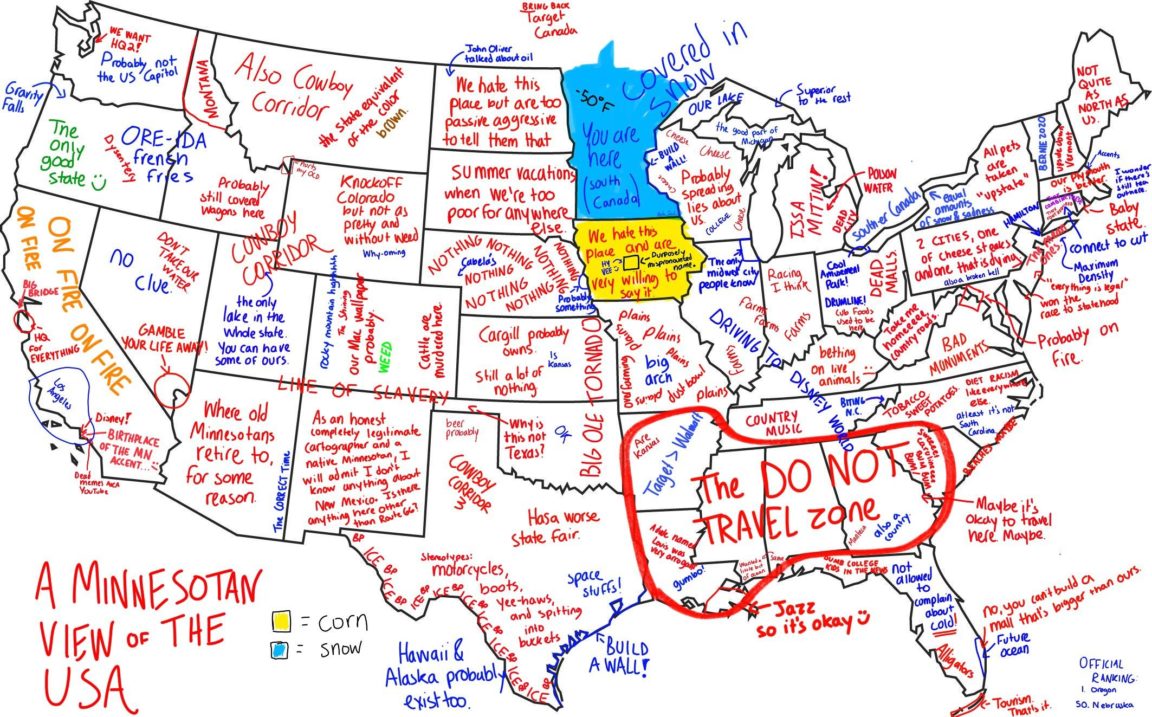 BRING BACK
Target
Canada
WE WANT
HQ2!
Probably not
the US Capitol
Gravity
Falls
MONTANA
Also Cowboy
Corridor
the state equivalent
of the color
brown.
John Oliver
talked about oil
We hate this
place but are too
passive aggressive
to tell them that
-50°F
You are
here
(south
Canada)
covered in
snow
OUR LAKE
Superior
to the rest
the good part of
Michigan
The
only
good
state
ORE-IDA
french
fries
Dysentery
Probably
still covered
wagons here
COWBOY
CORRIDOR
Knockoff
Colorado
but not as
pretty and
without weed
Why-oming
Summer vacations
when we're too
poor for anywhere
else.
Cheese
Cheese
BUILD
A WALL!
Probably
spreading
lies about
us.
Cheese
COLLEGE
ISSA
MITTIN!
POISON
WATER
DEAD
CITY
souther Canada
equal
amounts
of snow & sadness
All pets
are
taken
"upstate"
BERNIE 2020
upside down
Vermont
NOT
QUITE
AS
NORTH AS
US.
Accents
I wonder
if there's
still tea
out here.
our Plymouth
is better
HAMILTON
Baby
State.
connect to cut
Maximum
Density
"everything is legal"
won the
race to statehood
Probably on
fire.
ON FIRE
ON FIRE
ON FIRE
BIG
BRIDGE
HQ
for
EVERYTHING
Los
Angeles
Disney!
BIRTHPLACE
OF THE MN
ACCENT...
Dead
memes AKA
YouTube
no
clue.
DON'T
TAKE OUR
WATER
GAMBLE
YOUR LIFE AWAY!
the only
lake in the
whole state
You can have
some of ours.
rocky mountain highhhh
The Shining
Our Mac wallpaper
probably.
WEED
Cattle are
murdered here
NOTHING NOTHING NOTHING
Cabela's
NOTHING NOTHING
NOTHING NOTHING
NOTHING
Probably
something
We hate this
place and are
Purposely
mispronounced
name.
very willing to
say it.
The only
midwest city
people know
Farms
Farms
Farms
Racing
I think
Farms
Cool
Amusement
Park!
DRUMLINE!
(Wb Foods
used to be
here)
DEAD
MALLS.
2 CITIES, one
of cheese steaks
and one that is dying.
also a broken bell
Take me
homeeeee
country roads.
BAD
MONUMENTS
Cargill probably
owns.
Is
Kansas
Still a lot of
nothing
plains
plains
plains
plains
plains
overfarming
dust bowl
big
arch
DRIVING TO DISNEY WORLD
betting
on live
animals
LINE OF SLAVERY
Where old
Minnesotans
retire to,
for some
reason.
THE CORRECT TIME
As an honest
completely legitimate
cartographer and a
native Minnesotan, I
will admit I don't
know anything about
New Mexico. Is there
anything here other
than Route 66?
beer
probably
Why is
this not
Texas?
OK
BIG OLE TORNADO
COWBOY
CORRIDOR
3
Has a worse
state fair.
Are
Kansas
Target > Walmart
COUNTRY
MUSIC
BITING
N.C.
TOBACCO
SWEET
POTATOES.
DIET RACISM
like everywhere
else.
at least it's not
South
Carolina
The DO NOT
TRAVEL zone
also a
country.
Maybe it's
okay to travel
here. Maybe.
A dude named
Louis was
very arrogant
gumbo!
Jazz
so it's okay
DUMB COLLEGE
KIDS IN THE NEWS
not
allowed
to
complain
about
cold!
Alligators
no, you can't build a
mall that's bigger than ours.
Future
ocean
Tourism.
That's it.
Stereotypes:
motorcycles,
boots,
yee-haws,
and spitting
into
buckets
BP
ICE
BP
ICE
BP
ICE
BP
ICE
BP
ICE
BP
ICE
BP
ICE
BP
ICE
space
stuffs!
BUILD
A WALL!
A MINNESOTAN
VIEW OF THE
USA
= corn
= snow
Hawaii &
Alaska probably
exist too.
OFFICIAL
RANKING:
1. Oregon
50. Nebraska